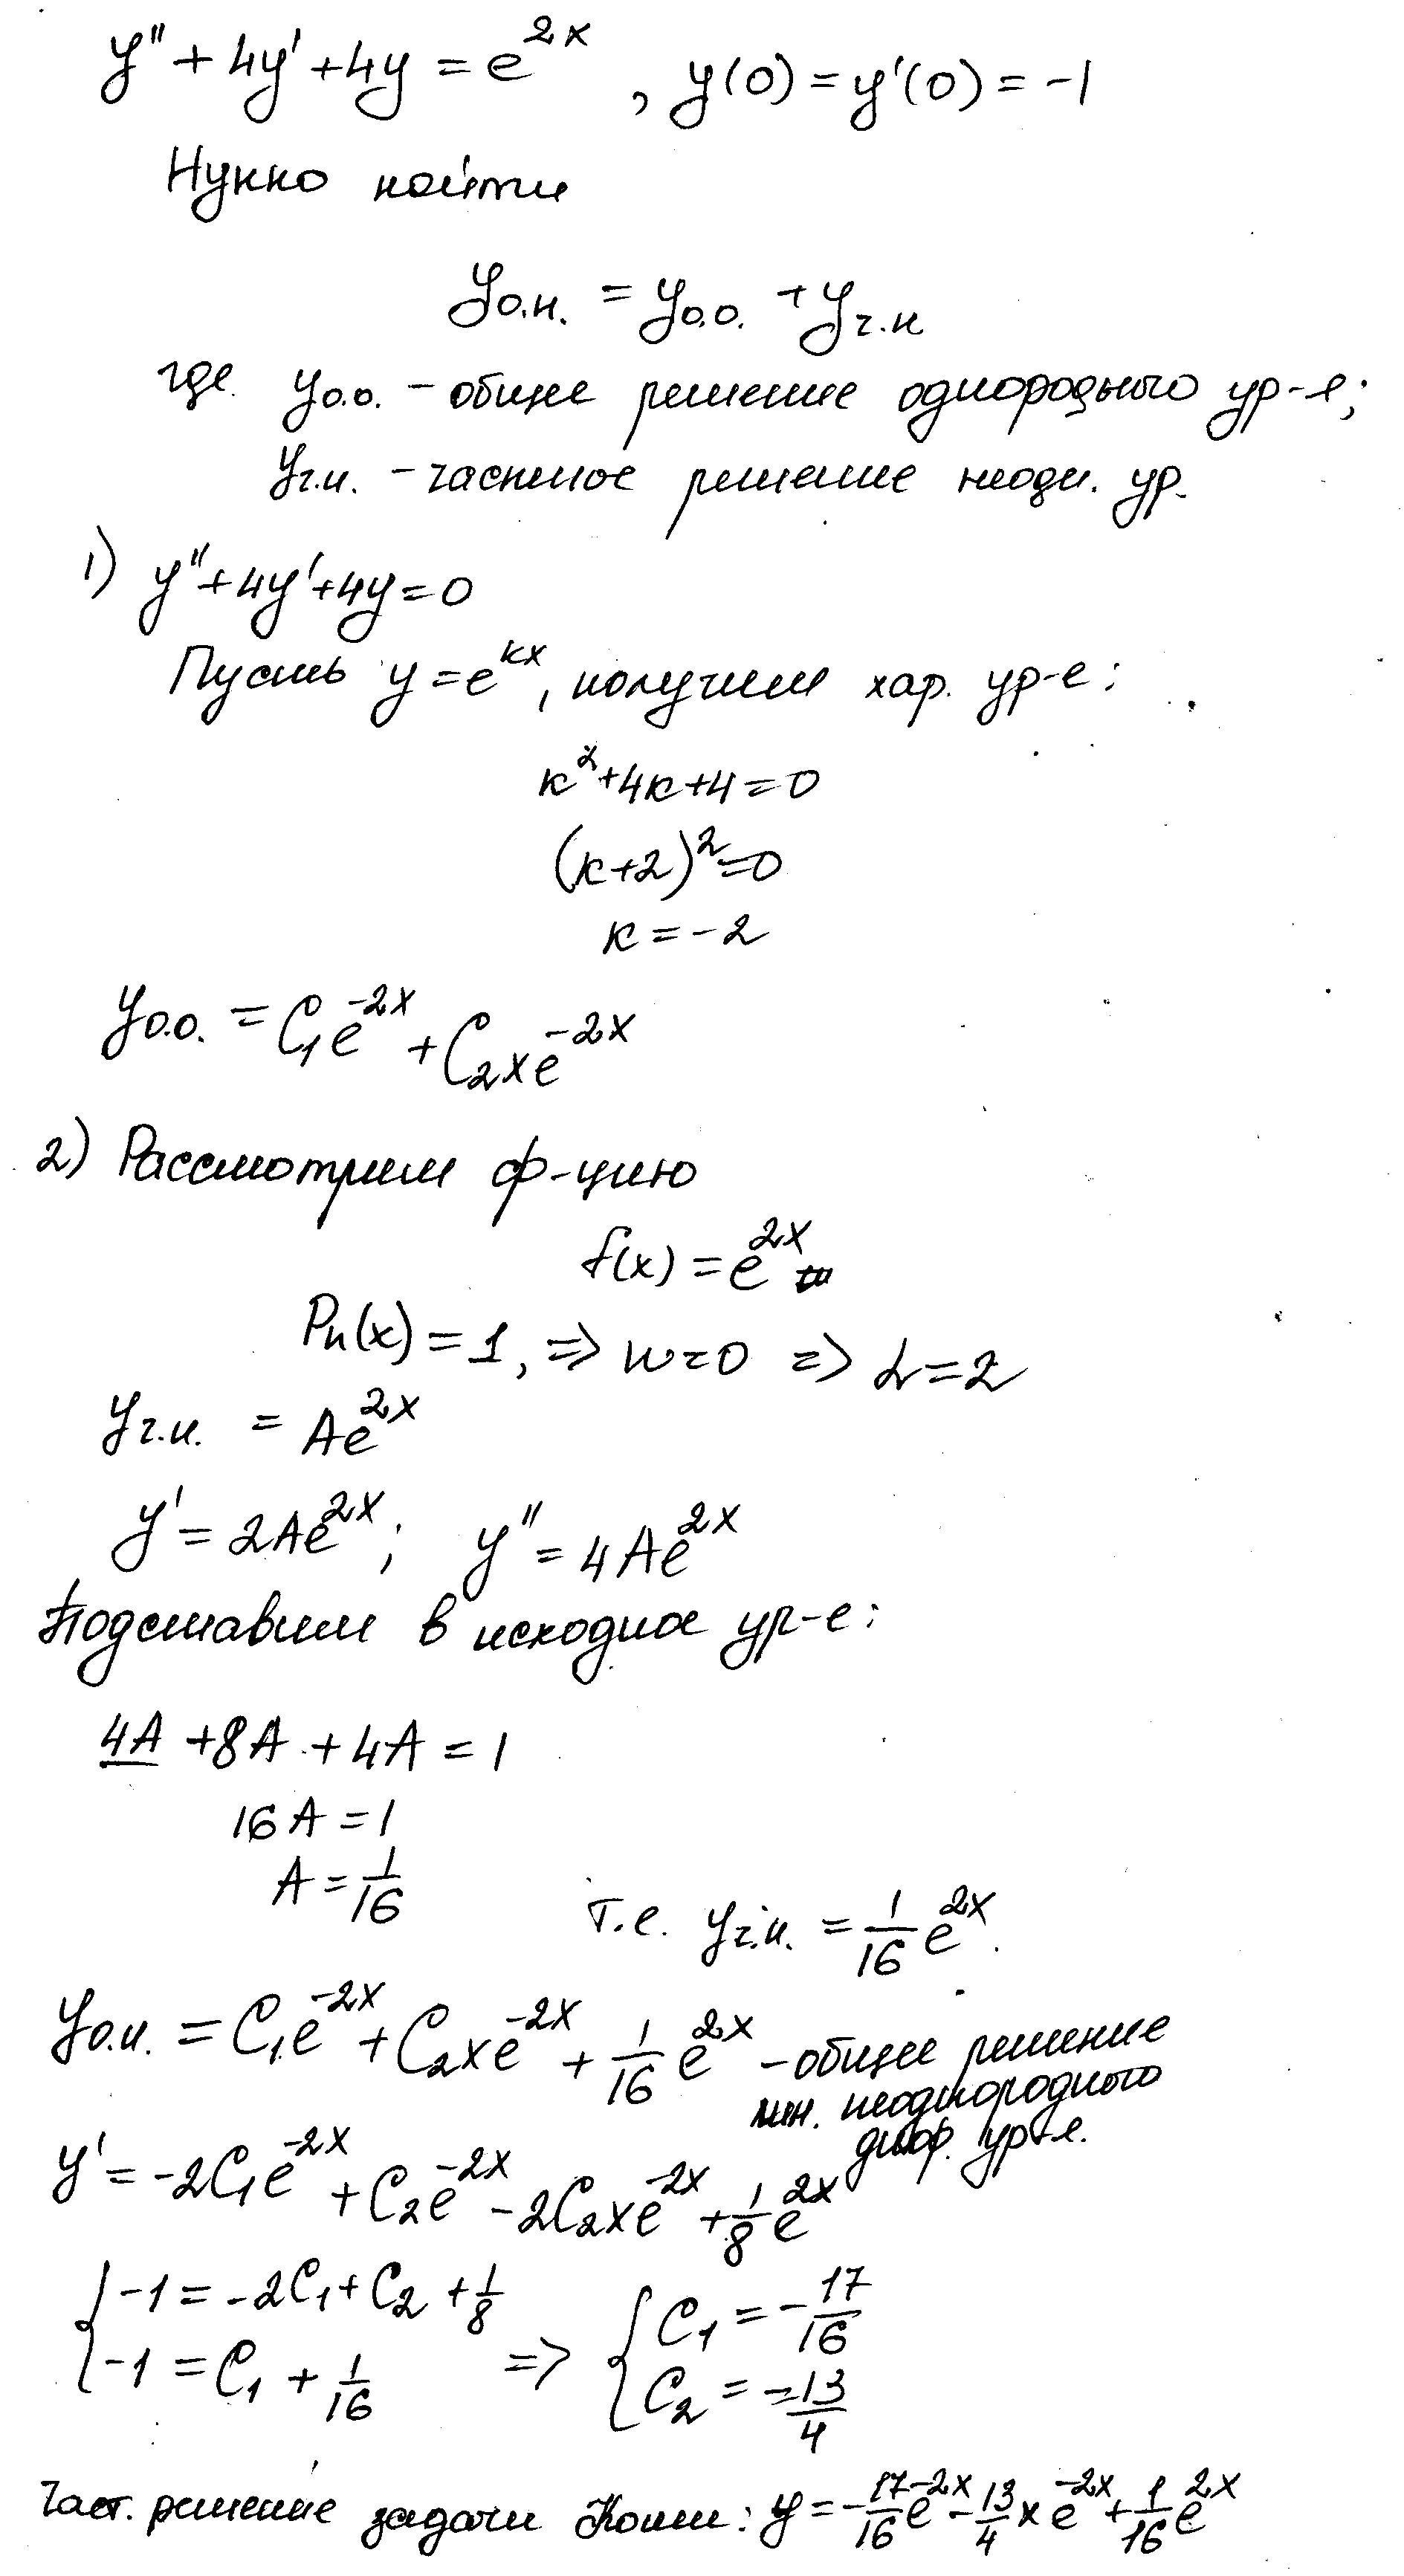 y'' + 4y' + 4y = e^{2x} , y(0) = y'(0) = -1
Нужно найти
y_{о.н.} = y_{о.о.} + y_{ч.н}
где y_{о.о.} - общее решение однородного ур-я;
y_{ч.н.} - частное решение неодн. ур.
1) y'' + 4y' + 4y = 0
Пусть y = e^{kx}, получим хар. ур-е:
k^2 + 4k + 4 = 0
(k+2)^2 = 0
k = -2
y_{о.о.} = C_1e^{-2x} + C_2xe^{-2x}
2) Рассмотрим ф-цию
f(x) = e^{2x}
P_n(x) = 1, => n=0 => α=2
y_{ч.н.} = Ae^{2x}
y' = 2Ae^{2x}; y'' = 4Ae^{2x}
Подставим в исходное ур-е:
4A + 8A + 4A = 1
16A = 1
A = 1/16 т.е. y_{ч.н.} = 1/16 e^{2x}.
y_{о.н.} = C_1e^{-2x} + C_2xe^{-2x} + 1/16 e^{2x} - общее решение
лин. неоднородного
диф. ур-я.
y' = -2C_1e^{-2x} + C_2e^{-2x} - 2C_2xe^{-2x} + 1/8 e^{2x}
{ -1 = -2C_1 + C_2 + 1/8
-1 = C_1 + 1/16 => { C_1 = -17/16
C_2 = -13/4
Част. решение задачи Коши: y = -17/16 e^{-2x} - 13/4 x e^{-2x} + 1/16 e^{2x}